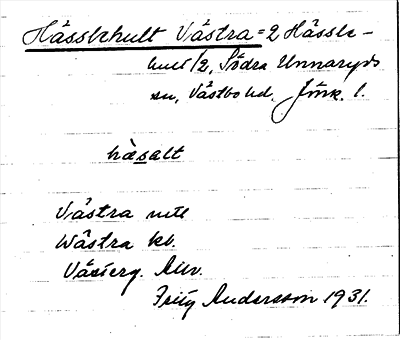 Hässlehult Västra = 2 Hässle-
hult 1/2, Södra Unnaryds
sn, Västbo hd. Jönk. l.
hæsalt
Västra
Wästra kv.
Fritz Andersson 1931.